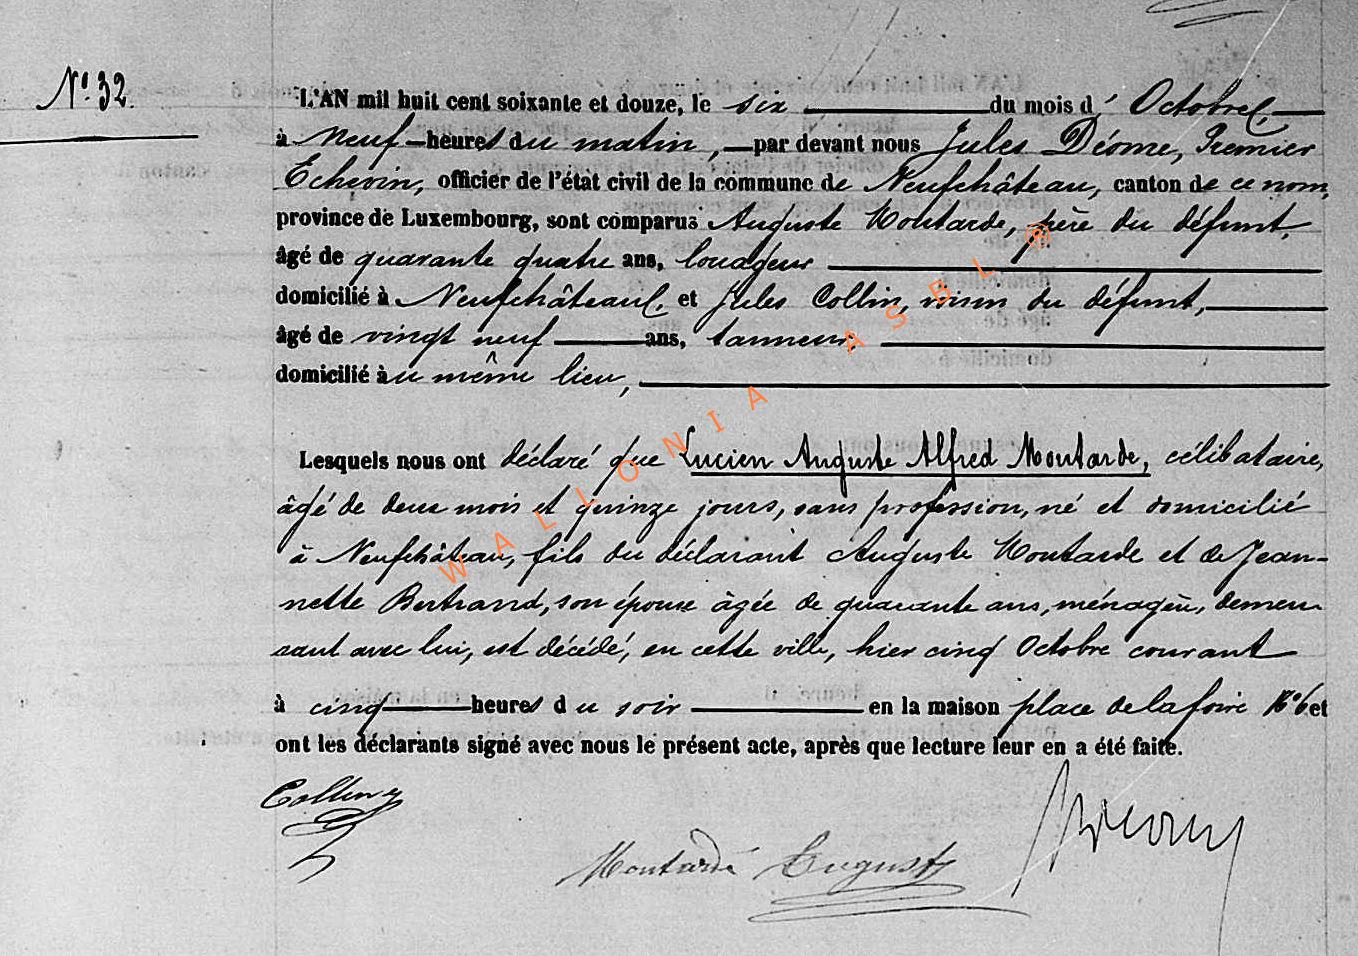 N° 32.
L'AN mil huit cent soixante et douze, le six du mois d' Octobre,
à neuf heures du matin, par devant nous Jules Déome, Premier
Echevin, officier de l'état civil de la commune de Neufchâteau, canton de ce nom,
province de Luxembourg, sont comparus Auguste Moutarde, père du défunt,
âgé de quarante quatre ans, louageur
domicilié à Neufchâteau, et Jules Collin, voisin du défunt,
âgé de vingt neuf ans, tanneur
domicilié àu même lieu,
Lesquels nous ont déclaré que Lucien Auguste Alfred Moutarde, célibataire,
âgé de deux mois et quinze jours, sans profession, né et domicilié
à Neufchâteau, fils du déclarant Auguste Moutarde et de Jean-
nette Bertrand, son épouse âgée de quarante ans, ménagère, demeu-
rant avec lui, est décédé, en cette ville, hier cinq Octobre courant
à cinq heures du soir en la maison place de la foire N° 6 et
ont les déclarants signé avec nous le présent acte, après que lecture leur en a été faite.
Collin
Moutarde Auguste
WALLONIA ASBL ®